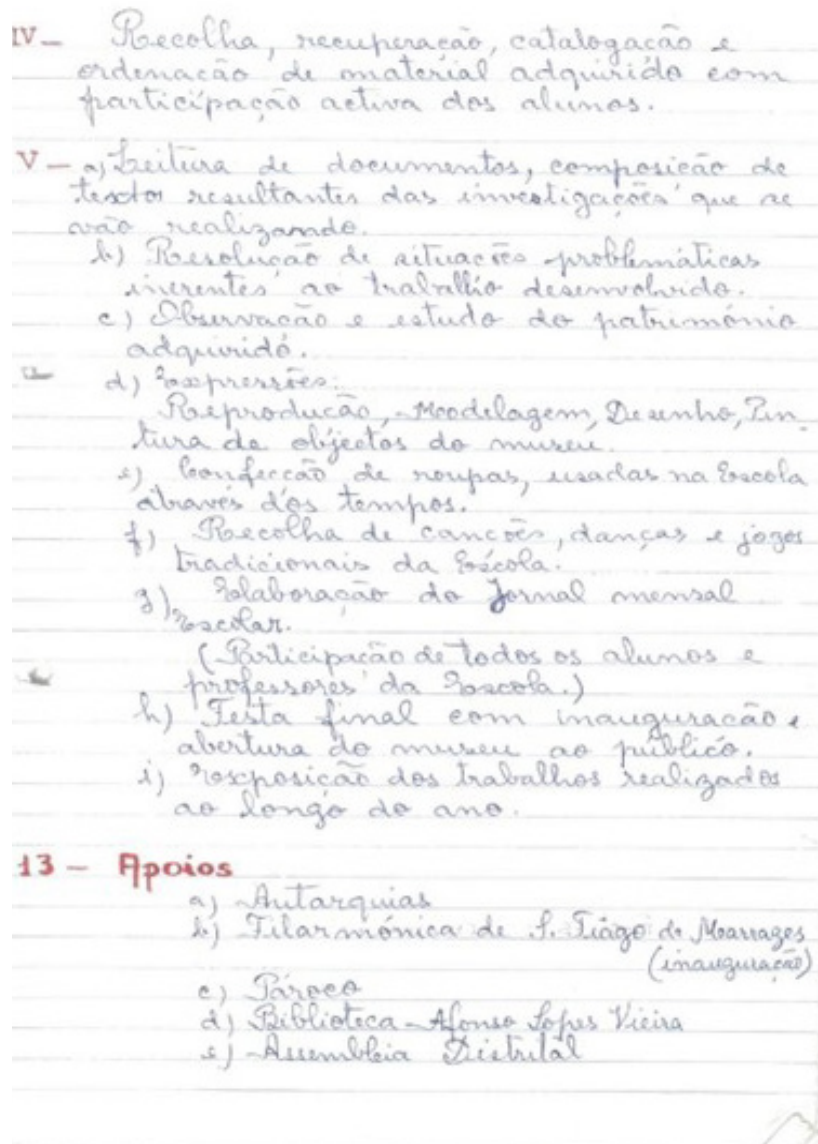 IV - Recolha, recuperação, catalogação e
ordenação de material adquirido com
participação activa dos alunos.
V - a) Leitura de documentos, composição de
textos resultantes das investigações que se
vão realizando.
b) Resolução de situações problemáticas
inerentes ao trabalho desenvolvido.
c) Observação e estudo do património
adquirido.
d) Expressões:
Reprodução, Modelagem, Desenho, Pin_
tura de objectos do museu.
e) Confecção de roupas, usadas na Escola
através dos tempos.
f) Recolha de canções, danças e jogos
tradicionais da Escola.
g) Elaboração do Jornal mensal
Escolar.
(Participação de todos os alunos e
professores da Escola.)
h) Festa final com inauguração e
abertura do museu ao público.
i) Exposição dos trabalhos realizados
ao longo do ano.
13 - Apoios
a) Autarquias
b) Filarmónica de S. Tiago de Marrazes
(inauguração)
c) Pároco
d) Biblioteca - Afonso Lopes Vieira
e) - Assembleia Distrital